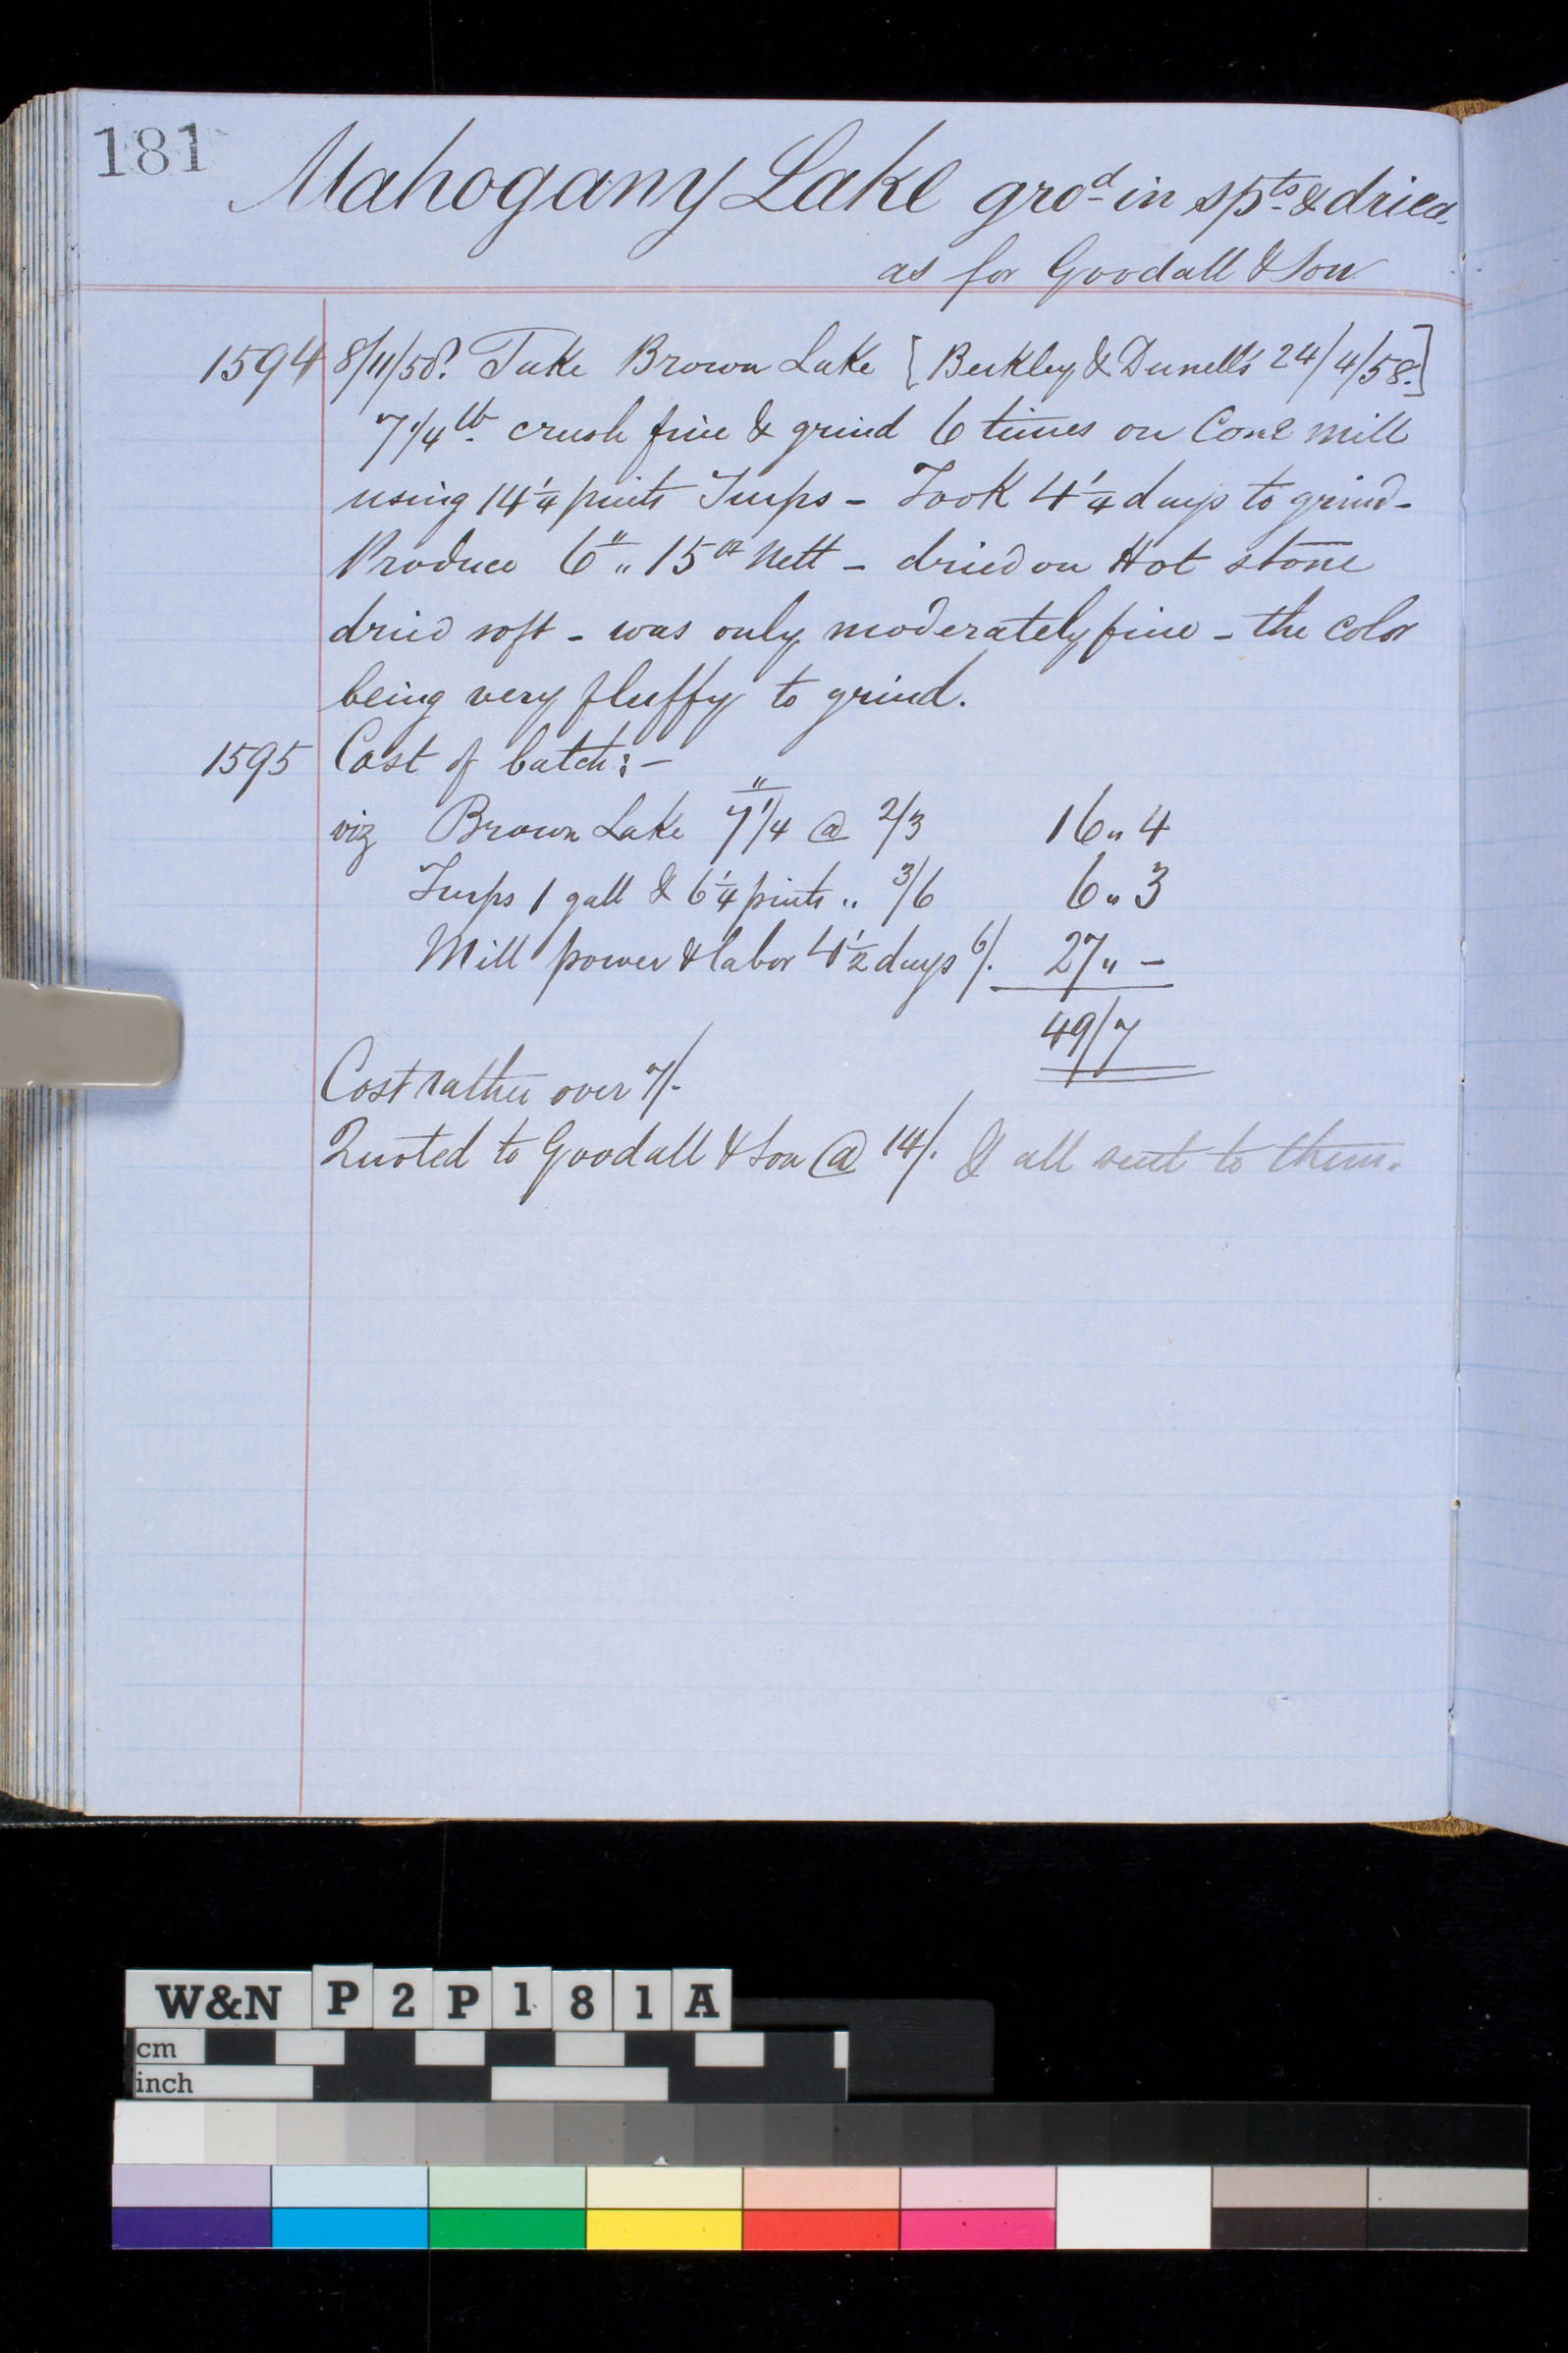 181
Mahogany Lake gro^d in sp^ts & dried
as for Goodall & Son
1594 8/11/58. Take Brown Lake [Berkley & Dunell's 24/4/58.]
7 1/4 lb. crush fine & grind 6 times on Cone mill
using 14 1/4 pints Turps – Took 4 1/4 days to grind –
Produce 6 " 15 oz Nett – dried on Hot stone
dried soft – was only moderately fine – the color
being very fluffy to grind.
1595 Cost of batch :–
viz Brown Lake 7 1/4 @ 2/3 16 " 4
Turps 1 gall & 6 1/4 pints " 3/6 6 " 3
Mill power & labor 4 1/2 days 6/. 27 " –
49/7
Cost rather over 7/-
Quoted to Goodall & Son @ 14/. & all sent to them.
W&N P 2 P 1 8 1 A
cm
inch